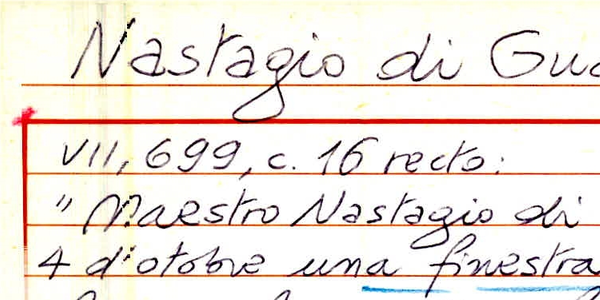 Nastagio di Gua
VII, 699, c. 16 recto:
" Maestro Nastagio di
4 d'otobre una finestra